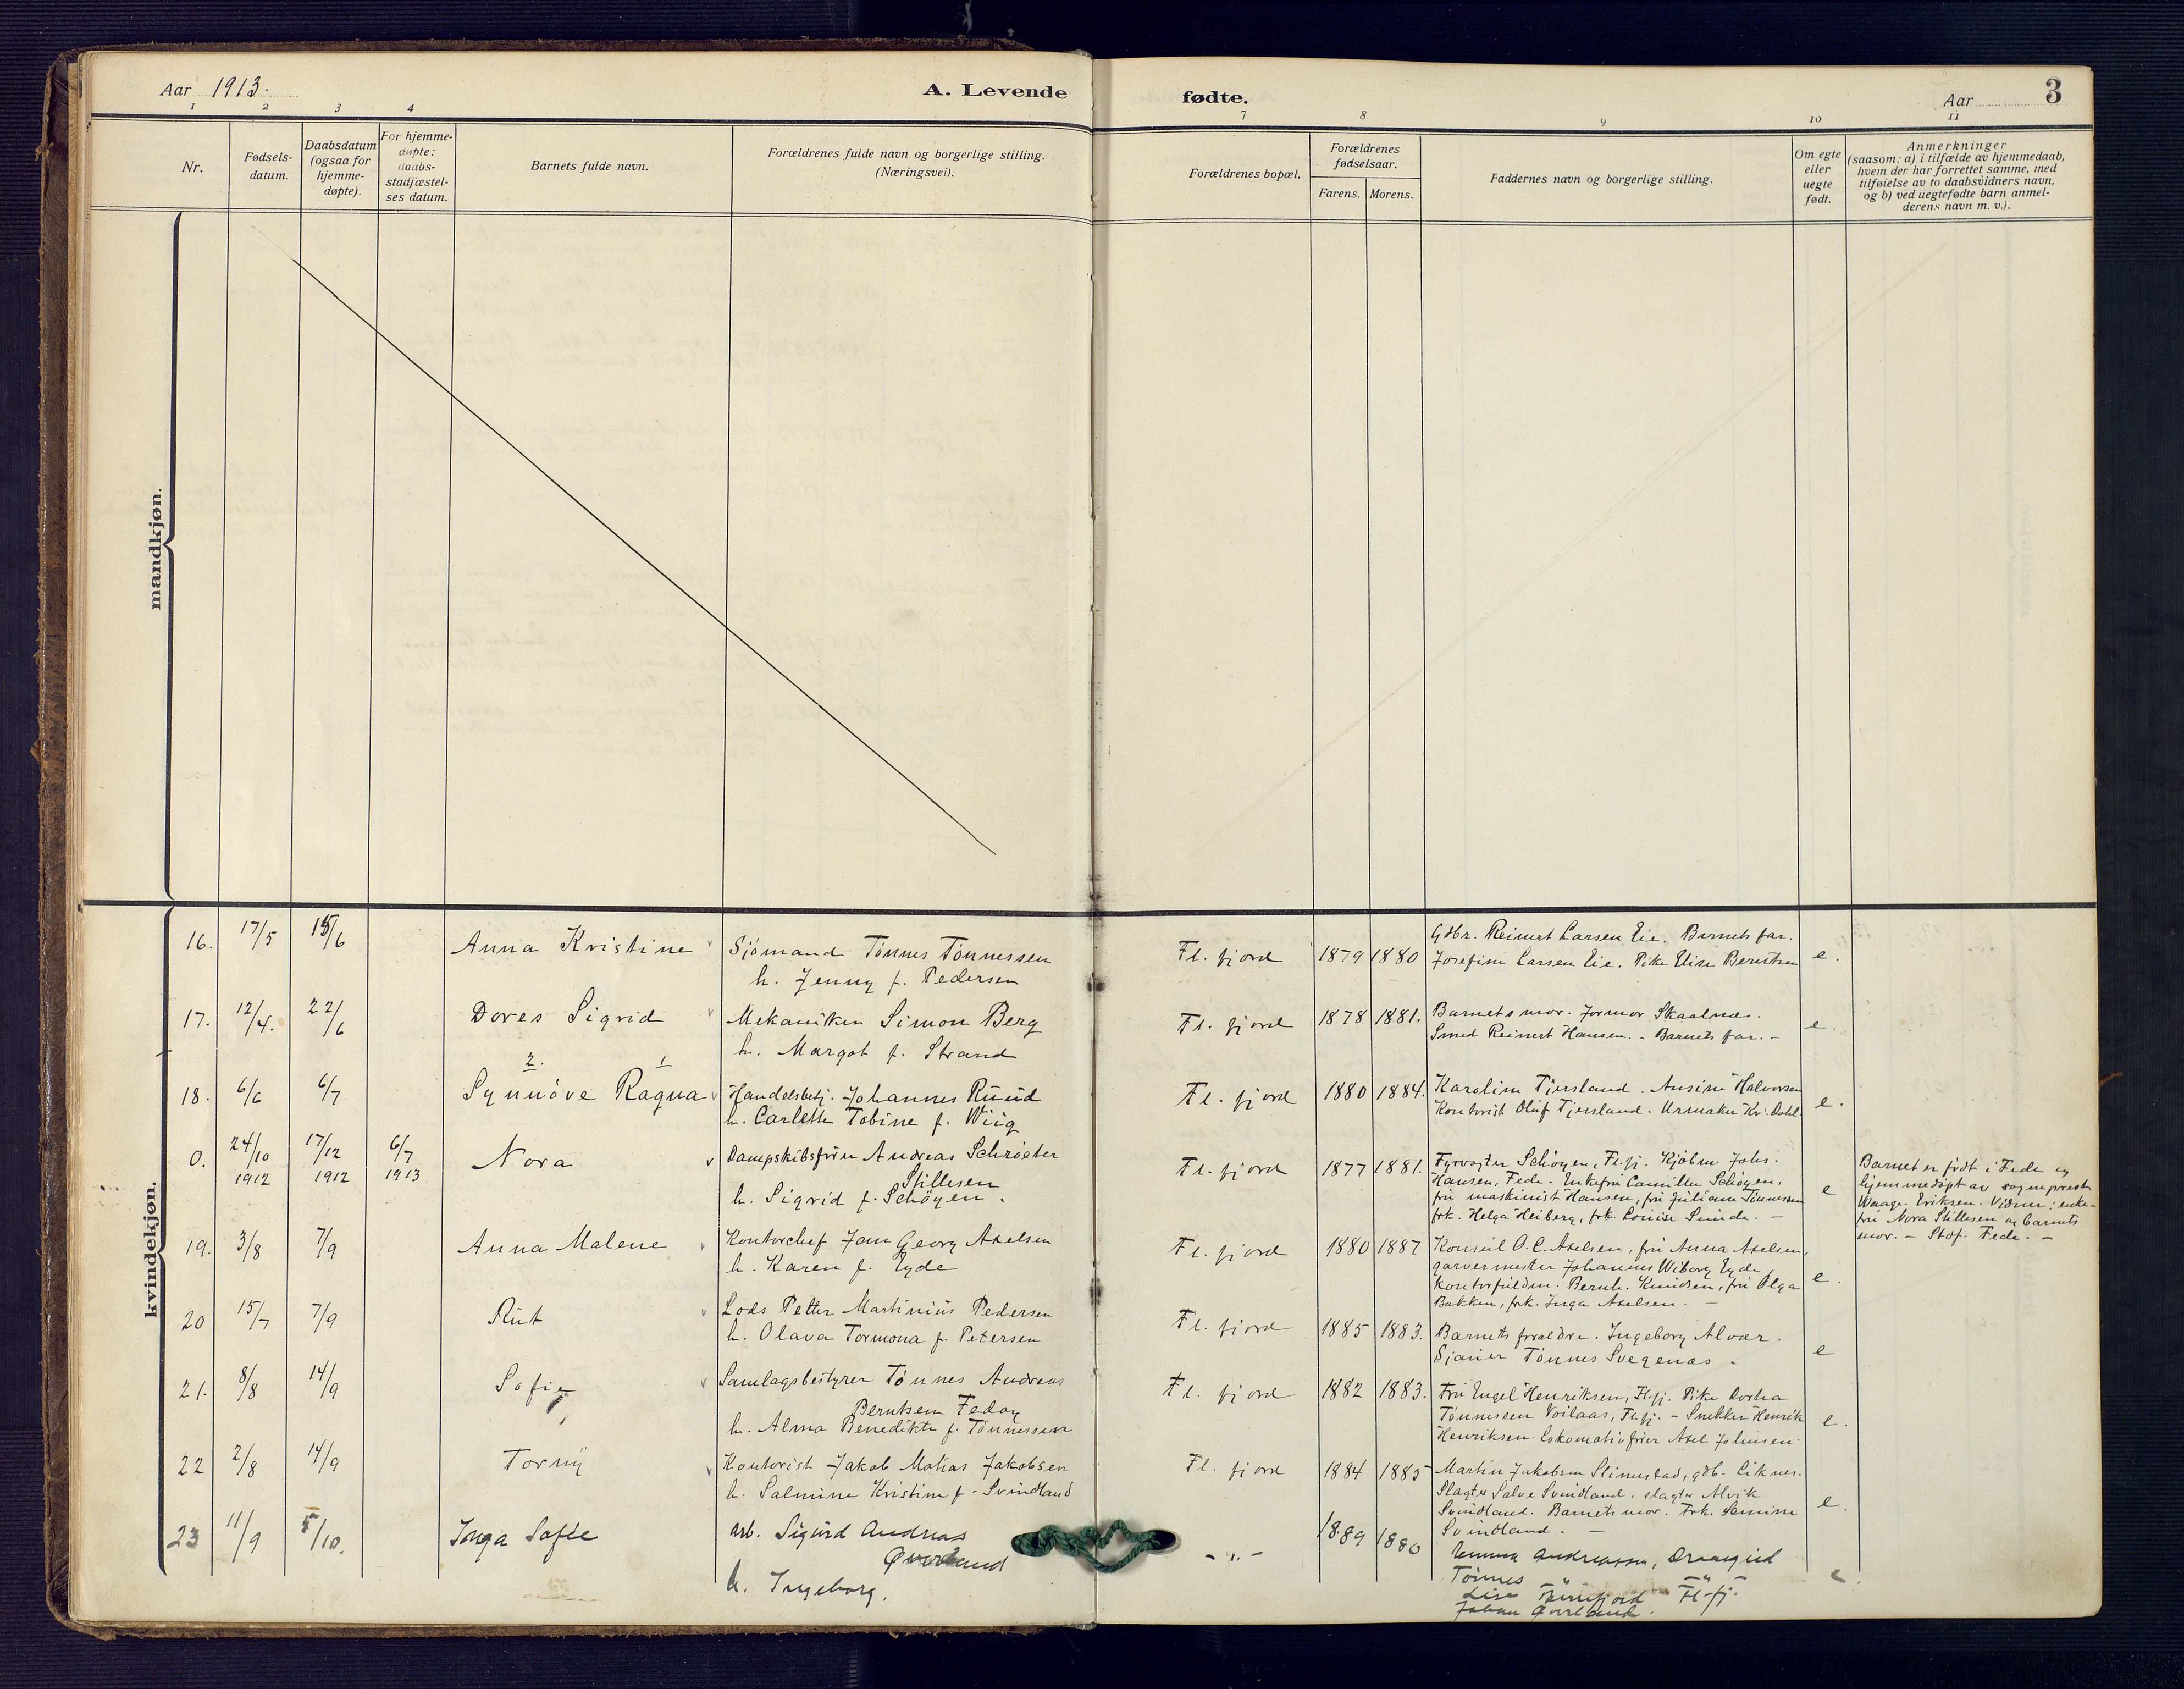 Aar 1913.
A. Levende
fødte.
Aar
3
1
2
3
4
7
8
9
10
11
Nr.
Fødsels-
datum.
Daabsdatum
(ogsaa for
hjemme-
døpte).
For hjemme-
døpte:
daabs-
stadfæstel-
ses datum.
Barnets fulde navn.
Forældrenes fulde navn og borgerlige stilling.
(Næringsvei).
Forældrenes bopæl.
Forældrenes
fødselsaar.
Farens.
Morens.
Faddernes navn og borgerlige stilling.
Om egte
eller
uegte
født.
Anmerkninger
(saasom: a) i tilfælde av hjemmedaab,
hvem der har forrettet samme, med
tilføielse av to daabsvidners navn,
og b) ved uegtefødte barn anmel-
derens navn m. v.).
mandkjøn.
kvindekjøn.
16. 17/5 15/6 Anna Kristine
Sjömand Tönnes Tönnessen
h. Jenny f. Pedersen
Fl. fjord 1879 1880
Gdbr. Reinert Larsen Eie. Barnets far.
Josefine Larsen Eie. Pike Elise Berntsen
e.
17. 12/4. 22/6 Dores Sigrid
Mekaniker Simon Berg
h. Margot f. Strand
Fl. fjord 1878 1881.
Barnets mor. Formor Skaalnes.
Smed Reinert Hansen. - Barnets far. -
e.
2. 1
18. 6/6 6/7 Synnöve Ragna
Handelsbetj. Johannes Ruud
h. Carlette Tobine f. Wiig
Fl. fjord 1880 1884.
Karoline Tjersland. Ansine Halvorsen
Kontorist Oluf Tjersland. Urmaker Kr. Dahl
e.
0. 24/10 1912 17/12 1912 6/7 1913 Nora
Dampskibsfører Andreas Schröeter
Stillesen
h. Sigrid f. Schöyen.
Fl. fjord 1877 1881.
Fyrvogter Schöyen, Fl.fj. Kjöbm Johs.
Hansen, Fede. Enkefru Camilla Schöyen,
fru maskinist Hansen, fru Juliane Tönnessen
frk. Helga Heiberg, frk. Louise Sunde. -
e
Barnet er födt i Fede og
hjemmedöpt av sogneprest
Waage Eriksen. Vidner: enke-
fru Nora Stillesen og barnets
mor. - Stdf. Fede. -
19. 3/8 7/9 Anna Malene
Kontorchef Jan Georg Axelsen
h. Karen f. Eyde
Fl. fjord 1880 1887
Konsul O. C. Axelsen, fru Anna Axelsen,
garvermester Johannes Wiborg Eyde,
kontorfuldm. Bernh. Knudsen, fru Olga
Bakken, frk. Inga Axelsen. -
e.
20 15/7 7/9 Rut
Lods Petter Martinius Pedersen
h. Olava Tormona f. Petersen
Fl. fjord 1885 1883.
Barnets foraeldre. Ingeborg Alvær.
Sjauer Tönnes Svegenæs -
e
21. 8/8 14/9 Sofie
Samlagsbestyrer Tönnes Andreas
Berntsen Feday
h. Alma Benedikte f. Tönnessen
Fl. fjord 1882 1883.
Fru Engel Henriksen, Fl.fj. Pike Dorthea
Tönnessen Voilaas, Fl.fj. - Snekker Henrik
Henriksen. Lokomotivfører Axel Johnsen
e.
22 2/8 14/9 Torny
Kontorist Jakob Matias Jakobsen
h. Salmine Kristine f. Svindland
Fl. fjord 1884 1885
Martin Jakobsen Slimestad, gdb. Liknes.
Slagter Salve Svindland. slagter Alvik
Svindland. Barnets mor. Frk. Semine
Svindland. -
e.
23 11/9 5/10. Inga Sofie
arb. Sigurd Andreas
Øverland
h. Ingeborg.
- " - 1889 1880
Emma Andreassen, Drangeid
Tönnes - " - - " -
Lise Finnfjord Fl-fj.
Johan Øverland.
e.